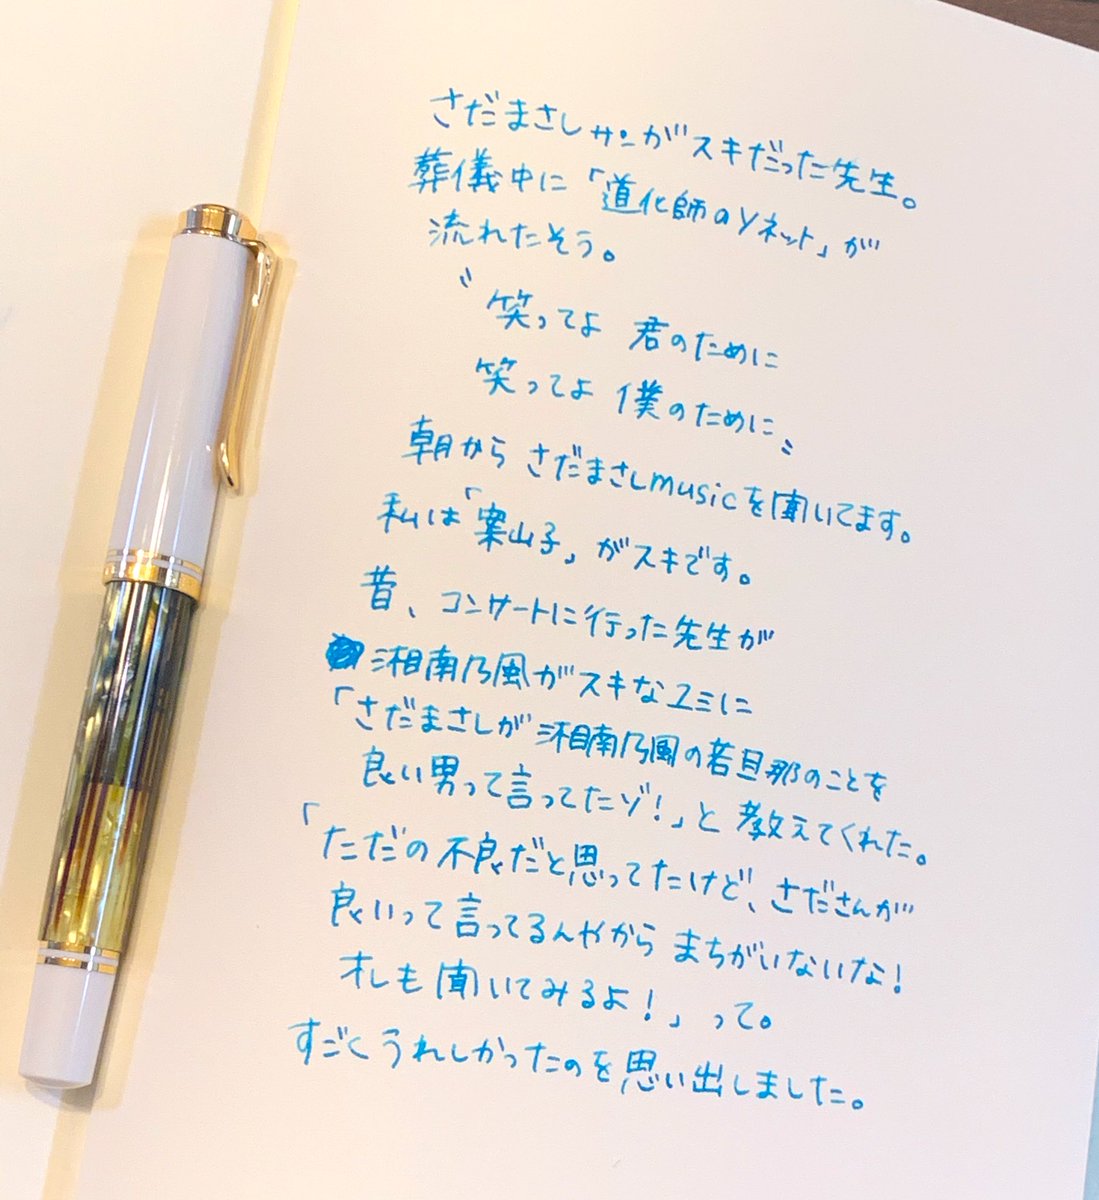 さだまさしサンがスキだった先生。
葬儀中に「道化師のソネット」が
流れたそう。
〝笑ってよ 君のために
笑ってよ 僕のために〟
朝から さだまさしmusicを聞いてます。
私は「案山子」がスキです。
昔、コンサートに行った先生が
湘南乃風がスキなユミに
「さだまさしが湘南乃風の若旦那のことを
良い男って言ってたゾ!」と教えてくれた。
「ただの不良だと思ってたけど、さださんが
良いって言ってるんやから まちがいないな!
オレも聞いてみるよ!」って。
すごくうれしかったのを思い出しました。